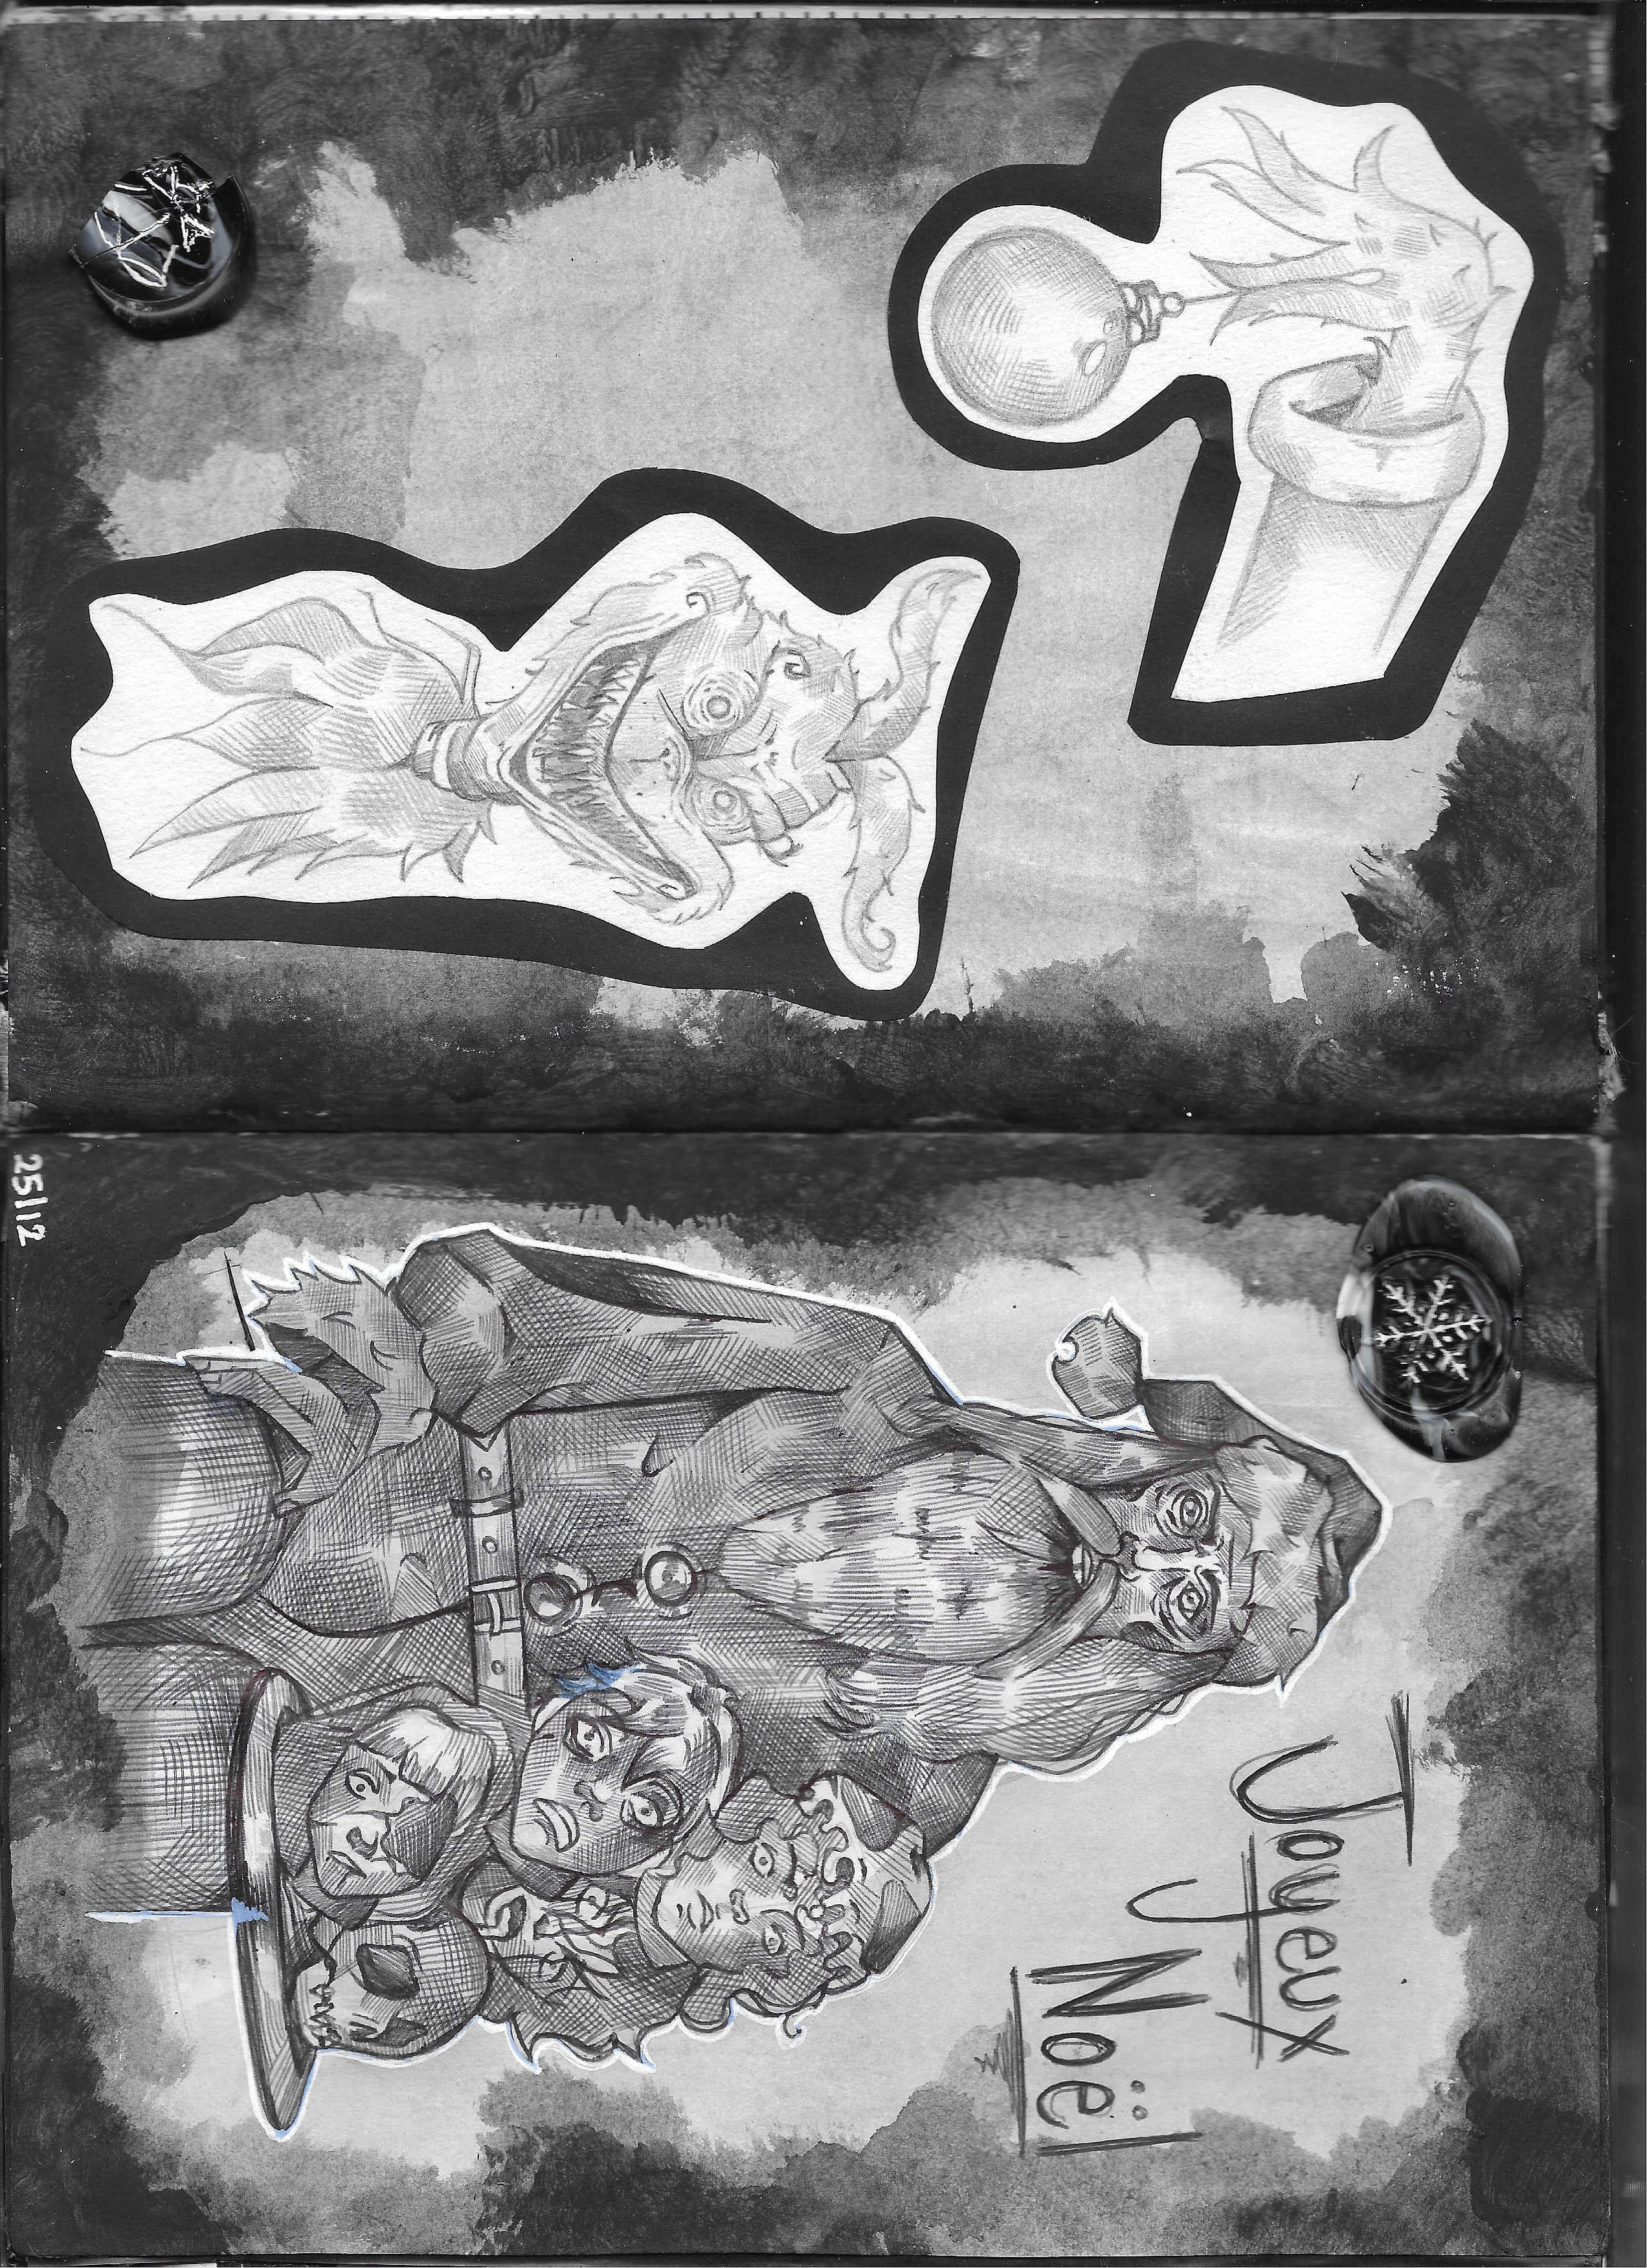 Joyeux
Noël
25/12